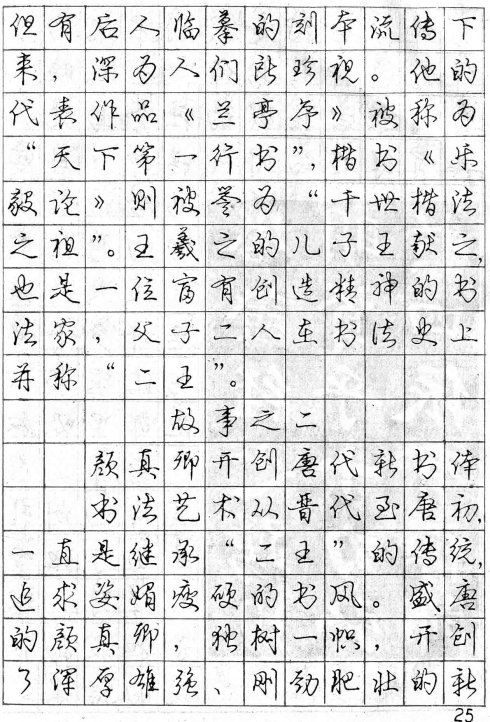 但有后人临摹的刻本流传下
来，深为人们所珍视。他的
代表作品《兰亭序》被称为
“天下第一行书”，楷书《乐
毅论》则被誉为“千世楷法
之祖”。王羲之的儿子王献之，
也是一位富有创造精神的书
法家，父子二人在书法史上
并称“二王”。
故事之二
颜真卿开创唐代新书体
书法艺术从晋代至唐初，
一直是继承“二王”的传统，
追求姿媚瘦硬的书风。盛唐
的颜真卿，独树一帜，开创
了浑厚雄强、刚劲肥壮的新
25